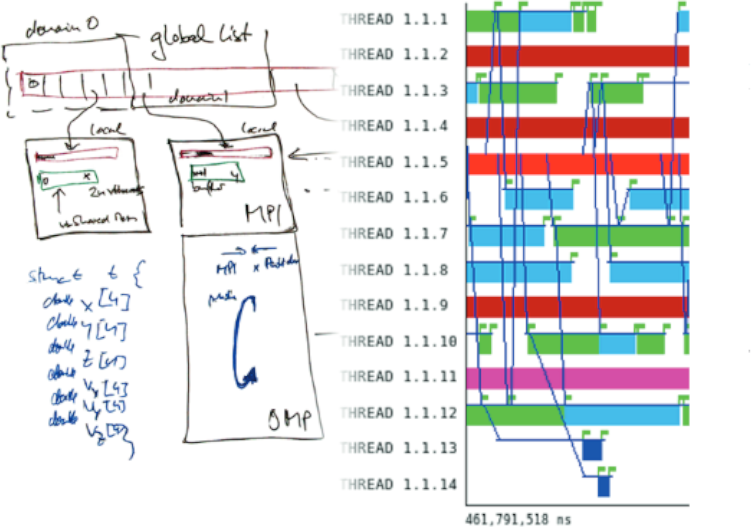 domain 0
global list
domain 1
local
local
buffer
MPI
MPI
OMP
struct t {
double x[4]
double y[4]
double z[4]
double vx[4]
double vy[4]
double vz[4]
}
THREAD 1.1.1
THREAD 1.1.2
THREAD 1.1.3
THREAD 1.1.4
THREAD 1.1.5
THREAD 1.1.6
THREAD 1.1.7
THREAD 1.1.8
THREAD 1.1.9
THREAD 1.1.10
THREAD 1.1.11
THREAD 1.1.12
THREAD 1.1.13
THREAD 1.1.14
461,791,518 ns